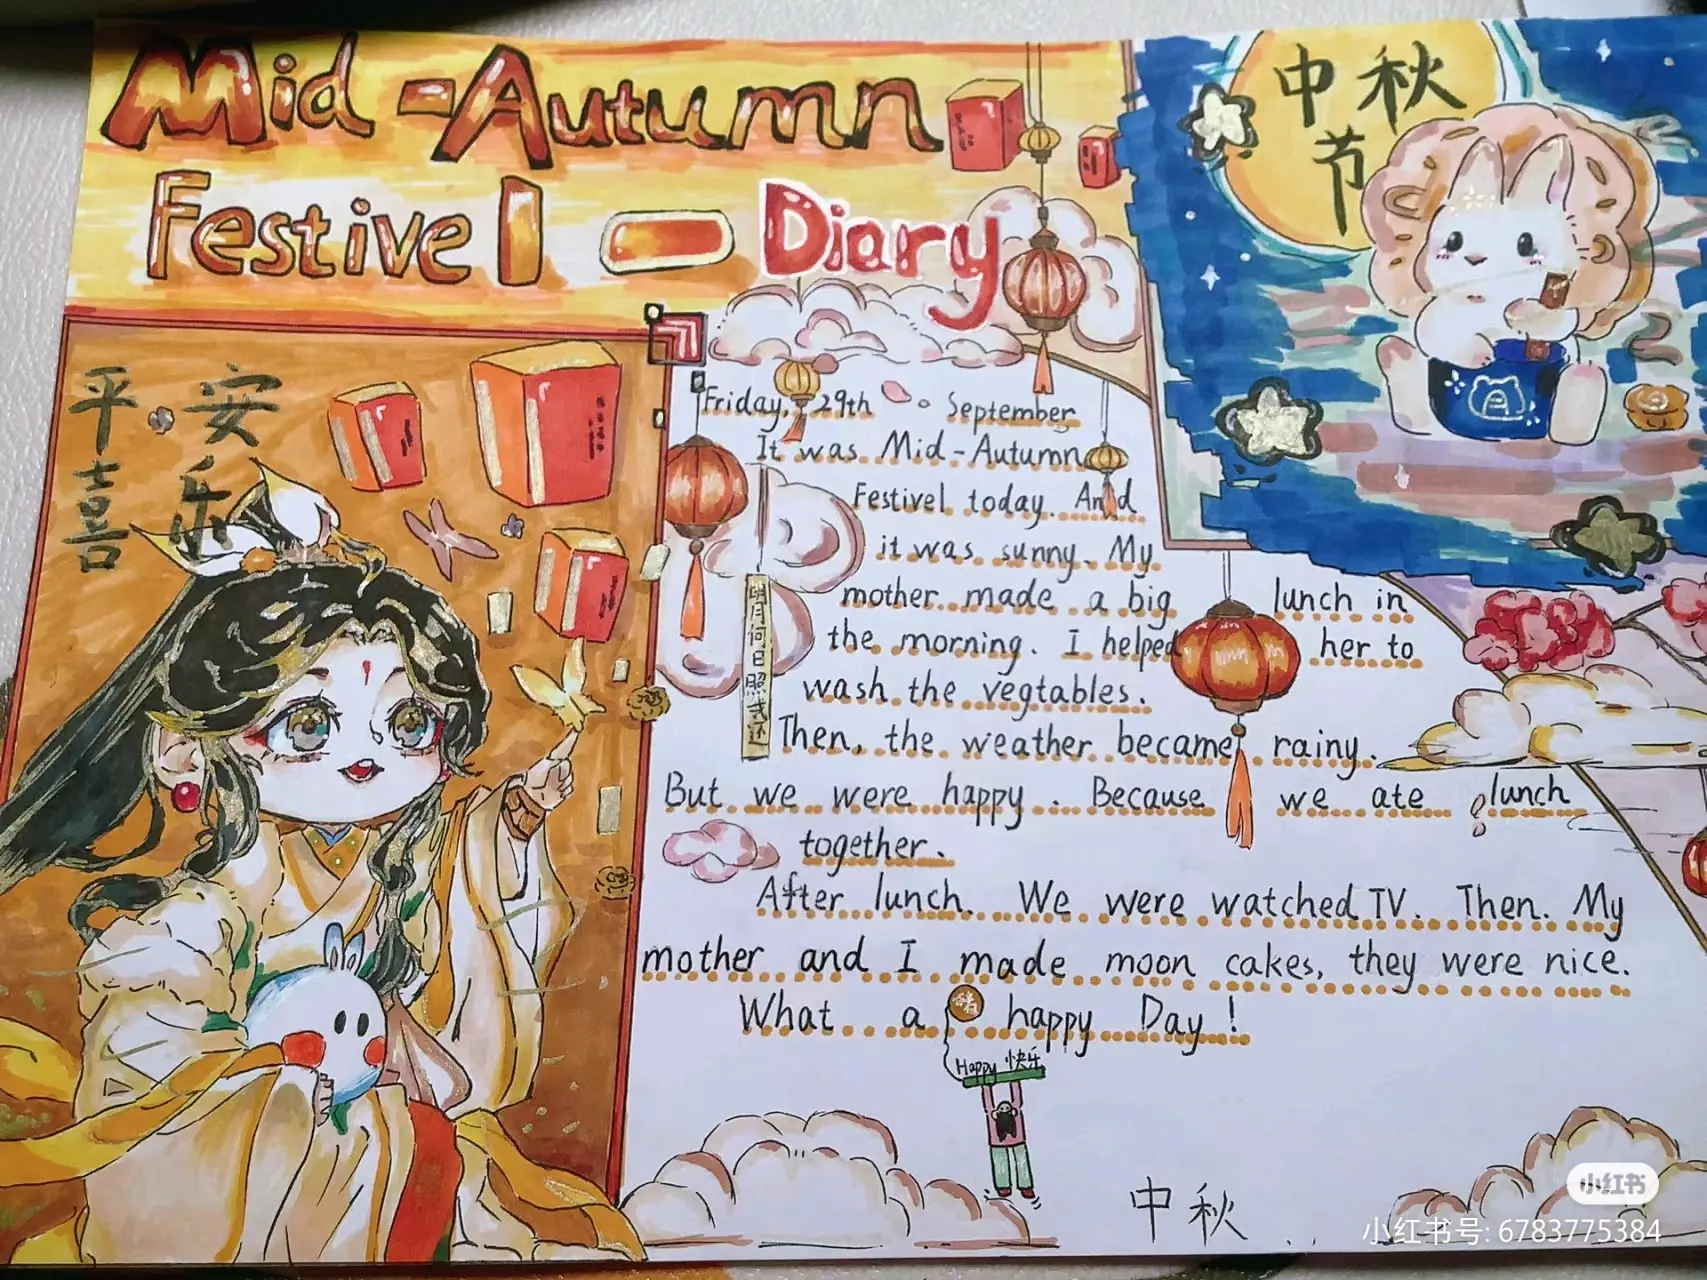 Mid-Autumn
Festivel - Diary
中秋
节
平安
喜乐
Friday, 29th September
It was Mid-Autumn
Festivel today. And
it was sunny. My
mother made a big lunch in
the morning. I helped her to
wash the vegtables.
Then, the weather became rainy.
But we were happy. Because we ate lunch
together.
After lunch. We were watched TV. Then. My
mother and I made moon cakes, they were nice.
What a happy Day!
明月何日照我还
Happy 快乐
中秋
小红书
小红书号: 6783775384